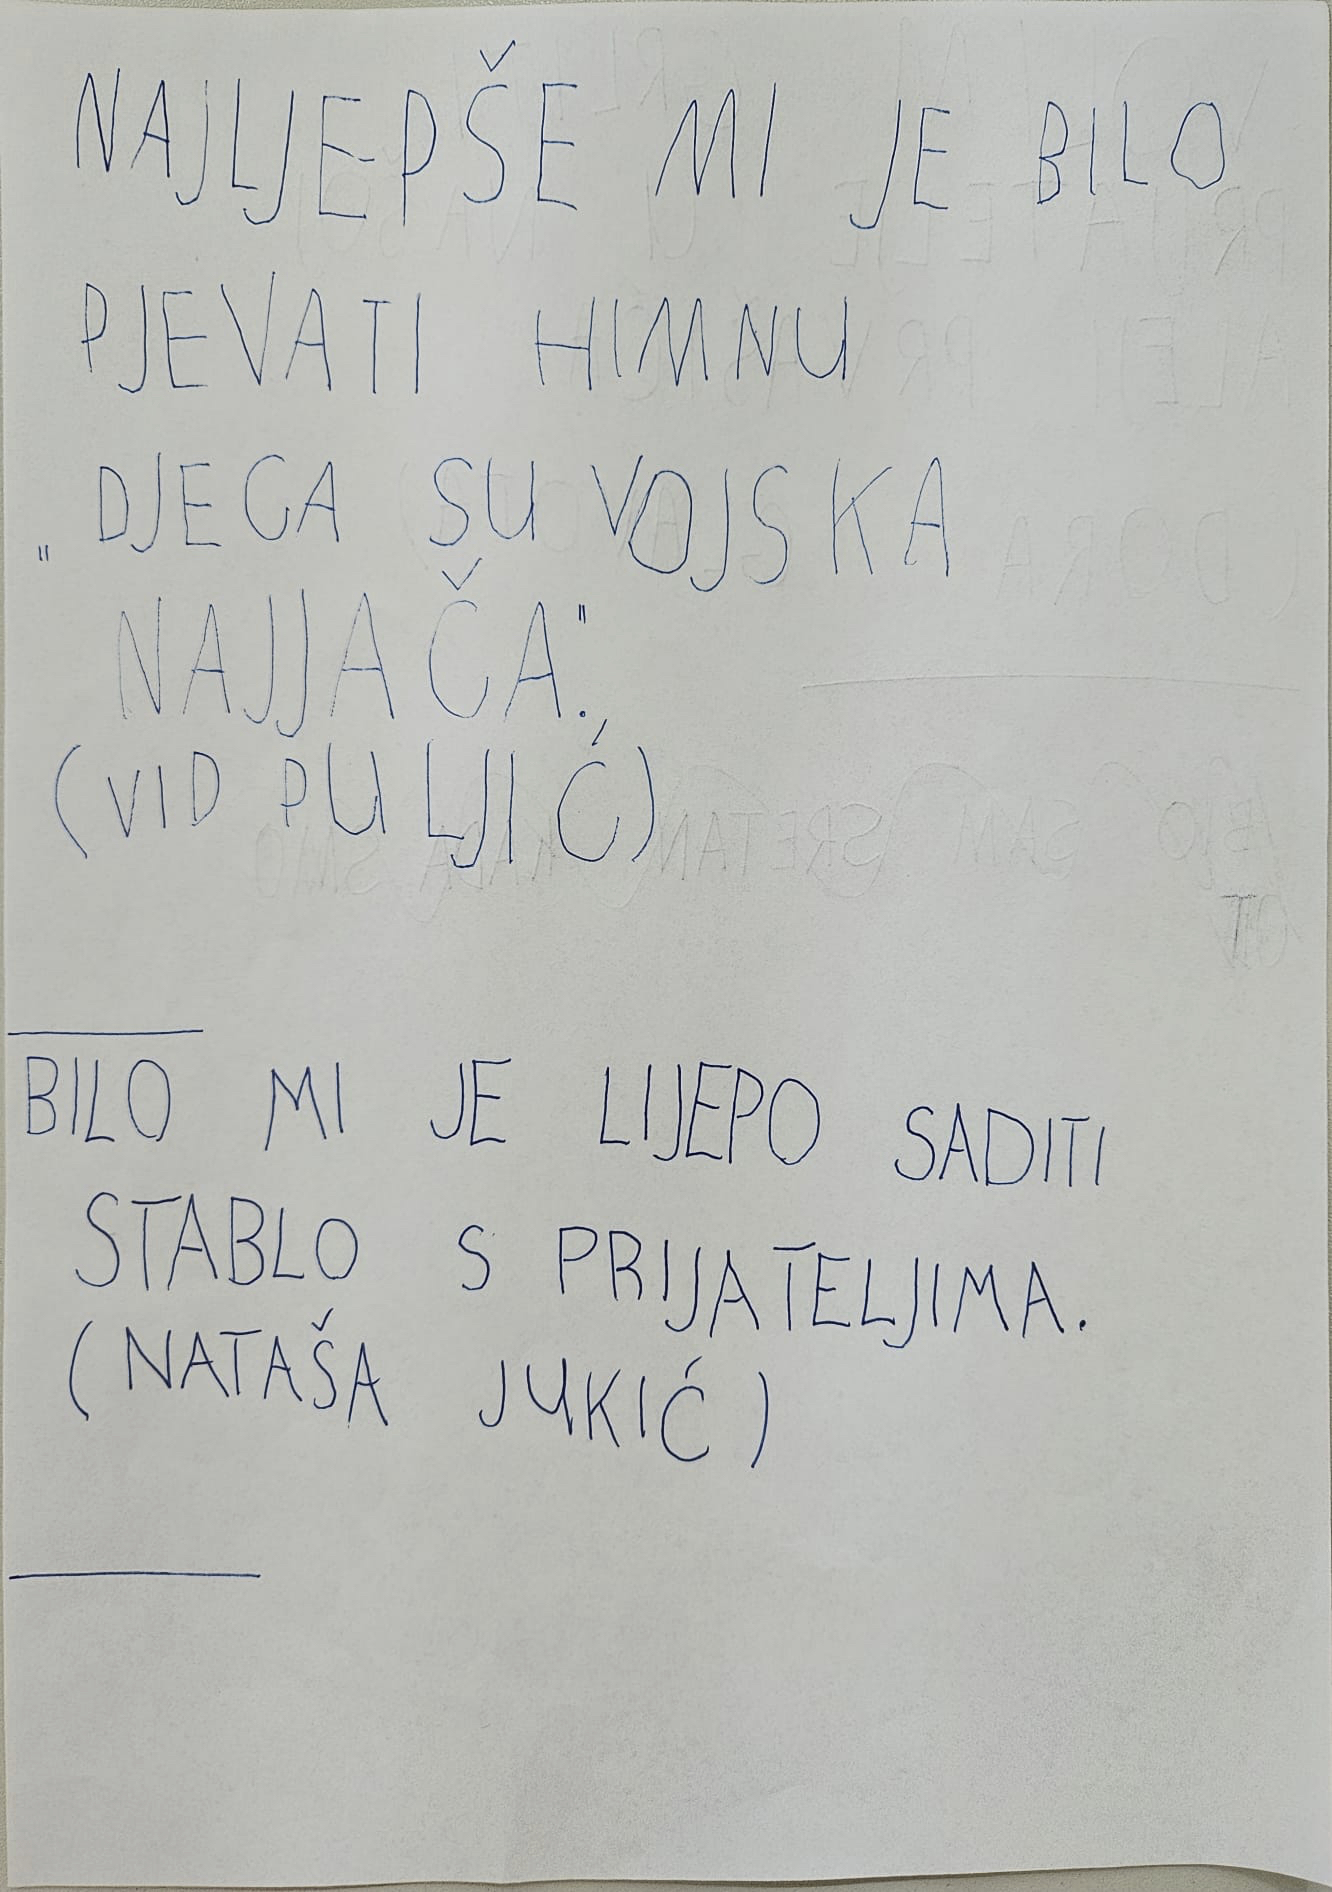 NAJLJEPŠE MI JE BILO
PJEVATI HIMNU
„DJECA SU VOJSKA
NAJJAČA".
(VID PULJIĆ)
BILO MI JE LIJEPO SADITI
STABLO S PRIJATELJIMA.
(NATAŠA JUKIĆ)